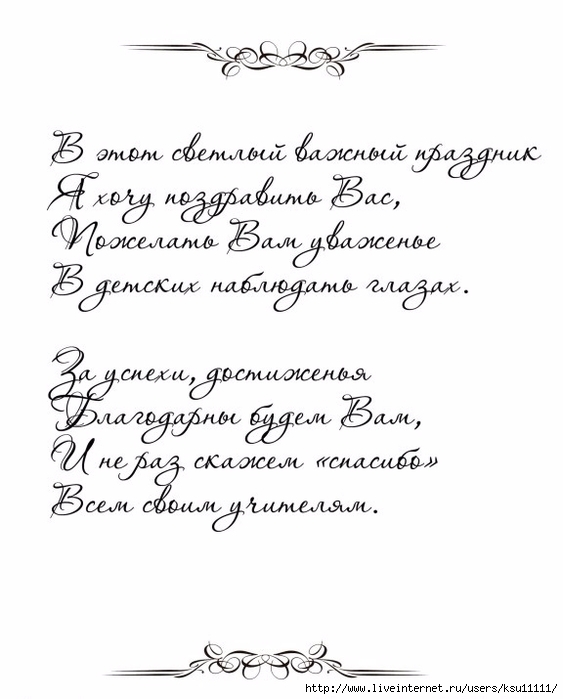 В этот светлый важный праздник
Я хочу поздравить Вас,
Пожелать Вам уваженье
В детских наблюдать глазах.
За успехи, достиженья
Благодарны будем Вам,
И не раз скажем «спасибо»
Всем своим учителям.
http://www.liveinternet.ru/users/ksu11111/